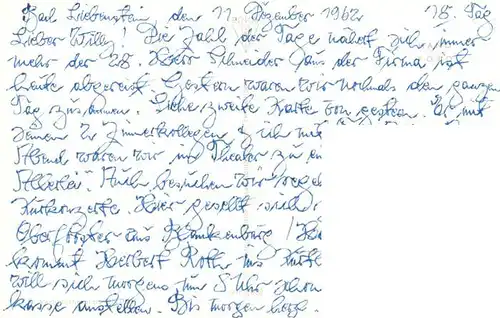 Bad Liebenstein, den 11. Dezember 1962 18. Tag
Lieber Willy! Die Zahl der Tage nähert sich immer
mehr der 28. Herr Schneider aus der Firma ist
heute abgereist. Gestern waren wir nochmals den ganzen
Tag zusammen. Siehe zweite Karte von gestern. Er mit
seinen 2 Zimmerkollegen & ich mit
Abend waren wir im Theater zu
Allerlei". Auch besuchen wir
Kurkonzerte. Hier gesellt sich
Oberförster aus Blankenburg
kommt Herbert Roth ins
will sich morgens um 5 Uhr schon
kasse anstellen. Bis morgen herzl.